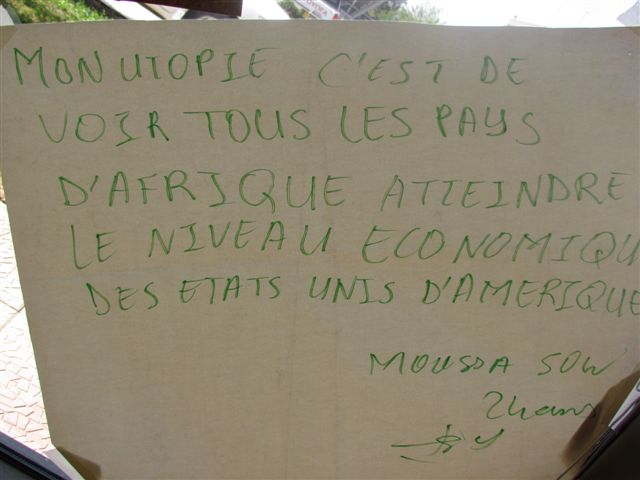 MON UTOPIE C'EST DE
VOIR TOUS LES PAYS
D'AFRIQUE ATTEINDRE
LE NIVEAU ECONOMIQU
DES ETATS UNIS D'AMERIQUE
MOUSSA SOW